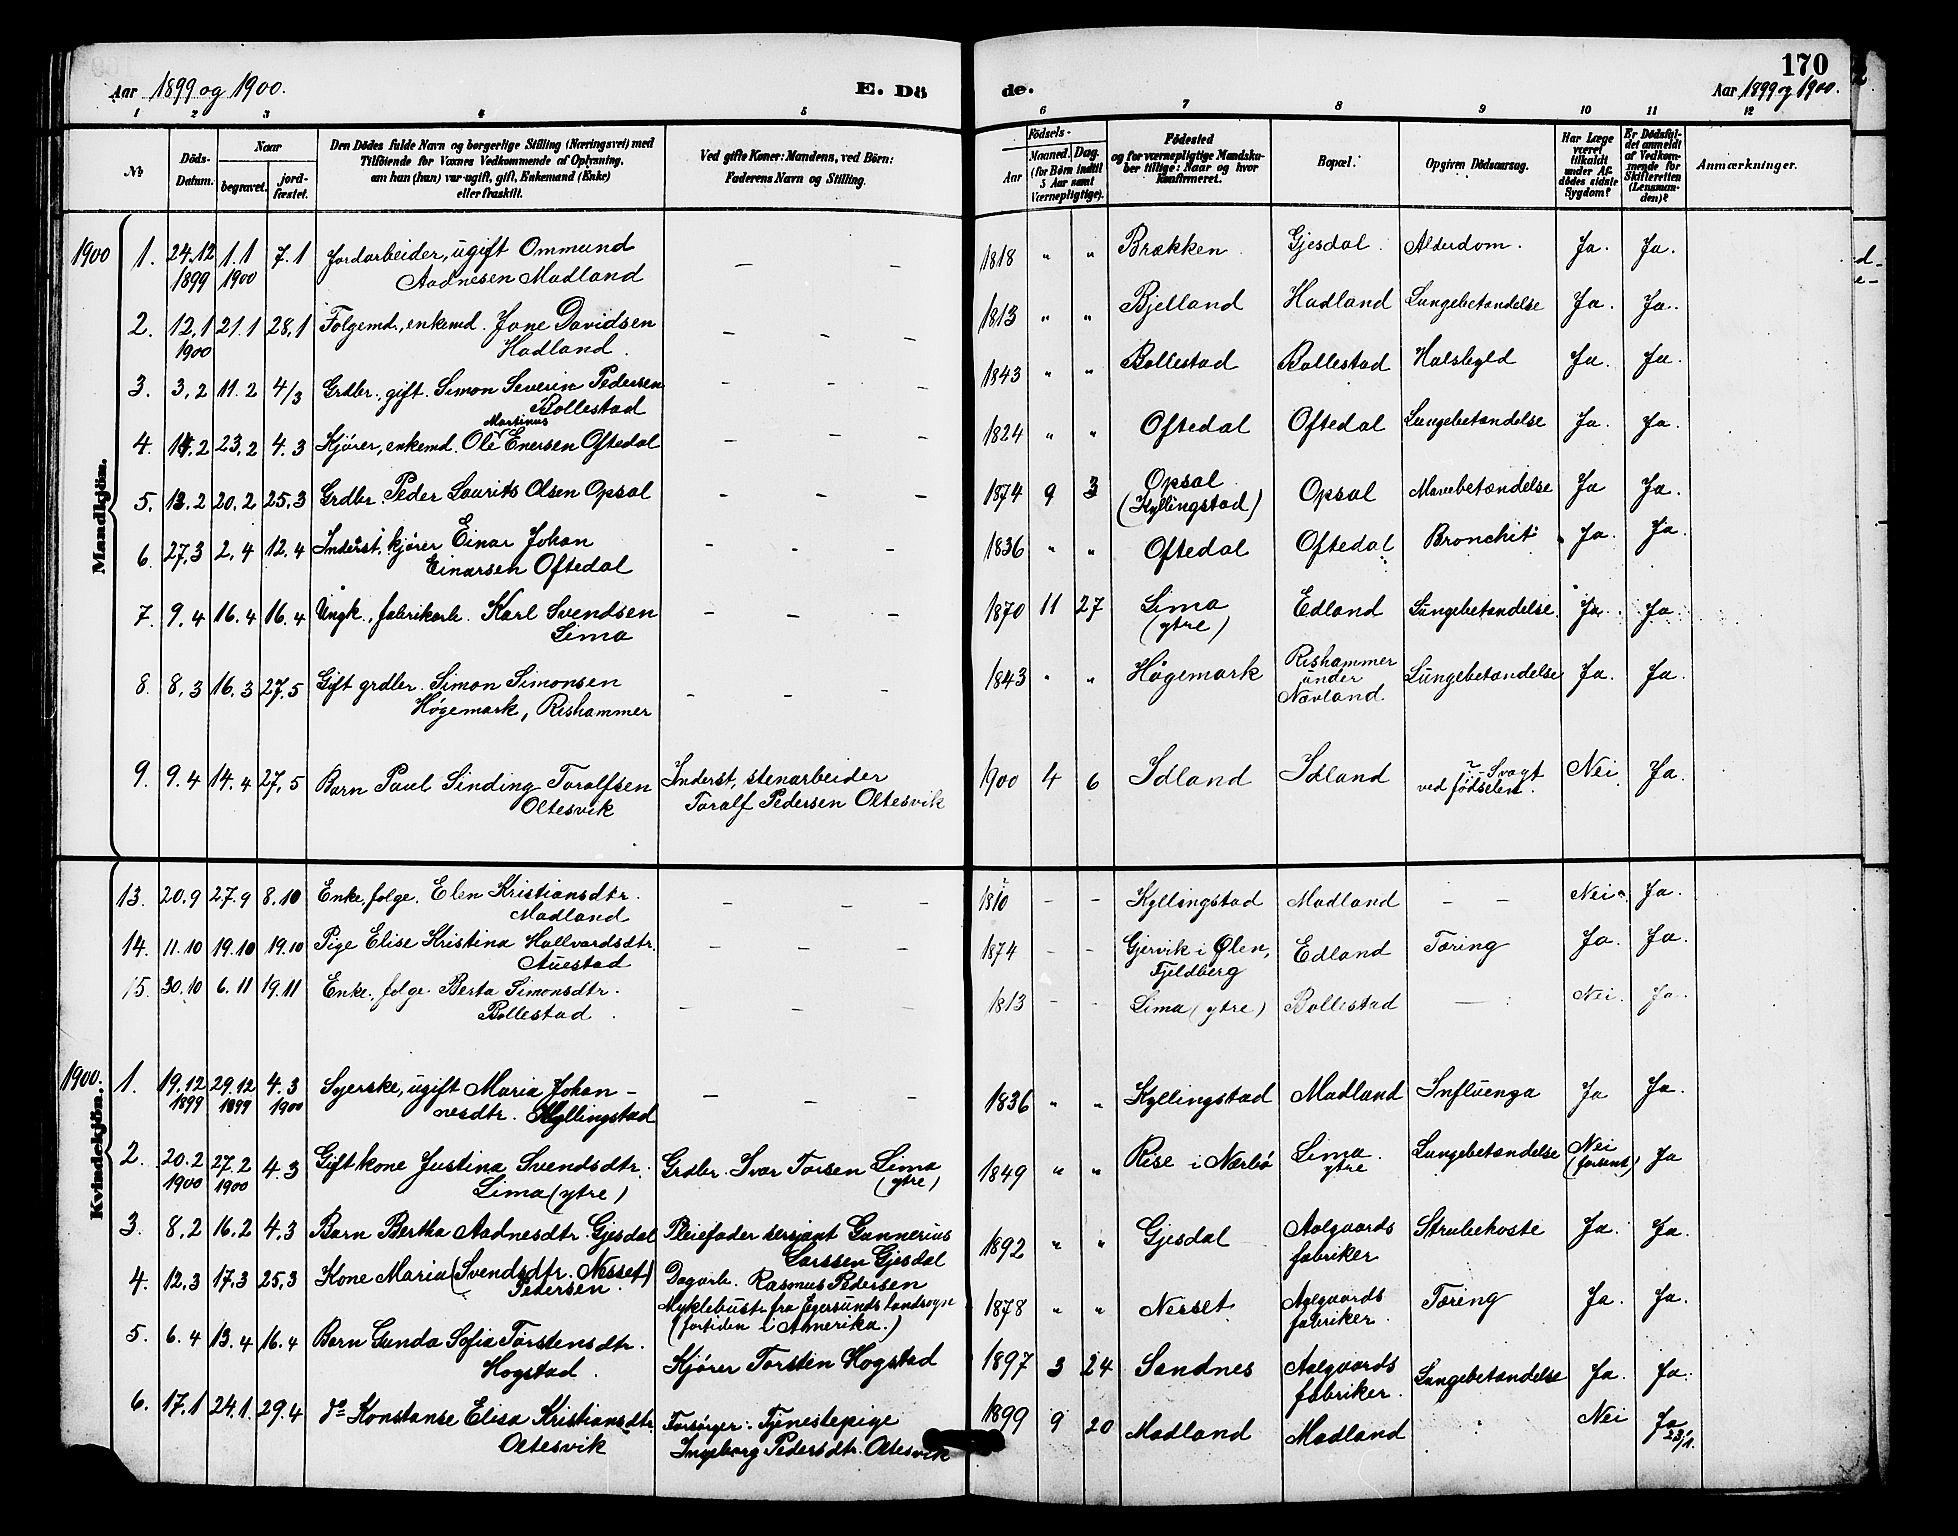 Aar 1899 og 1900.
E. Dö
de.
170
Aar 1899 og 1900.
1 2 3 4 5 6 7 8 9 10 11 12
№
Döds-Datum.
Naar
begravet.
jord-fæstet.
Den Dödes fulde Navn og borgerlige Stilling (Næringsvei) med
Tilföiende for Voxnes Vedkommende af Oplysning,
om han (hun) var ugift, gift, Enkemand (Enke)
eller fraskilt.
Ved gifte Koner: Mandens, ved Börn:
Faderens Navn og Stilling.
Födsels-
Aar
Maaned. Dag.
(for Börn indtil
5 Aar samt
Værnepligtige).
Födested
og for værnepligtige Mandska-
ber tillige: Naar og hvor
konfirmeret.
Bopæl.
Opgiven Dödsaarsag.
Har Læge
været
tilkaldt
under Af-
dödes sidste
Sygdom?
Er Dödsfal-
det anmeldt
af Vedkom-
mende for
Skifteretten
(Lensman-
den)?
Anmærkninger.
Mandkjön.
1900 1. 24.12 1899 1.1 1900 7.1 Jordarbeider, ugift Ommund
Aadnesen Madland — — — 1818 " " Brækken Gjesdal. Alderdom. Ja. Ja.
2. 12.1 1900 21.1 28.1 Folgemd., enkemd. Jone Davidsen
Hadland. — — — 1813 " " Bjelland Hadland Lungebetændelse Ja. Ja.
3. 3.2 11.2 4/3 Grdbr., gift. Simon Severin Pedersen
Bollestad — — — 1843 " " Bollestad Bollestad Halsbyld Ja. Ja.
4. 14.2 23.2 4.3 Kjører, enkemd. Ole Martinus Enersen Oftedal — — — 1824 " " Oftedal Oftedal Lungebetændelse Ja. Ja.
5. 13.2 20.2 25.3 Grdbr. Peder Laurits Olsen Opsal — — — 1874 9 3 Opsal
(Kyllingstad) Opsal Mavebetændelse Ja Ja.
6. 27.3 2.4 12.4 Inderst, kjører Einar Johan
Einarsen Oftedal — — — 1836 " " Oftedal Oftedal Bronchit Ja. Ja.
7. 9.4 16.4 16.4 Ungk., fabrikarb. Karl Svendsen
Lima — — — 1870 11 27 Lima
(ytre) Edland Lungebetændelse. Ja. Ja.
8. 8.3 16.3 27.5 Gift grdbr. Simon Simonsen
Høgemark, Rishammer — — — 1843 " " Høgemark Rishammer
under
Nævland. Lungebetændelse Ja. Ja.
9. 9.4 14.4 27.5 Barn Paul Sinding Toralfsen
Oltesvik Inderst, stenarbeider
Toralf Pedersen Oltesvik 1900 4 6 Idland Idland ? - Svagt
ved fødselen. Nei Ja.
Kvindekjön.
13. 20.9 27.9 8.10 Enke, folge. Elen Kristiansdtr.
Madland — — — 1810 - - Kyllingstad Madland — — Nei Ja.
14. 11.10 19.10 19.10 Pige Elise Kristina Hallvardsdtr.
Auestad — — — 1874 - - Gjervik i Ølen,
Fjeldberg Edland Tæring Ja. Ja.
15. 30.10 6.11 19.11 Enke, folge. Berta Simonsdtr.
Bollestad. — — — 1813 - - Lima (ytre) Bollestad — Nei. Ja.
1900. 1. 19.12 1899 29.12 1899 4.3 1900 Syerske, ugift Maria Johan-
nesdtr. Kyllingstad — — — 1836 " " Kyllingstad Madland Influenza Ja Ja.
2. 20.2 1900 27.2 1900 4.3 Gift kone Justina Svendsdtr.
Lima (ytre) Grdbr. Ivar Torsen Lima
(ytre) 1849 " " Rise i Nærbø Lima
ytre Lungebetændelse Nei
(forsent) Ja
3. 8.2 16.2 4.3 Barn Bertha Aadnesdtr. Gjesdal Pleiefader sersjant Gunnerius
Larssen Gjesdal 1892 " " Gjesdal Aalgaards
fabriker Strubehoste Ja. Ja.
4. 12.3 17.3 25.3 Kone Maria (Svendsdtr. Nesset)
Pedersen. Dagarb. Rasmus Pedersen
Myklebust fra Egersunds landsogn
(fortiden i Amerika.) 1878 " " Nesset Aalgaards
fabriker. Tæring Ja. Ja.
5. 6.4 13.4 16.4 Barn Gunda Sofia Torstensdtr.
Hogstad. Kjører Torsten Hogstad 1897 3 24 Sandnes Aalgaards
fabriker. Lungebetændelse Ja. Ja.
6. 17.1 24.1. 29.4 do Konstanse Elisa Kristiansdtr.
Oltesvik Forsørger: Tjenestepige
Ingeborg Pedersdtr. Oltesvik 1899 9 20 Madland Madland Nei Ja
23/1.